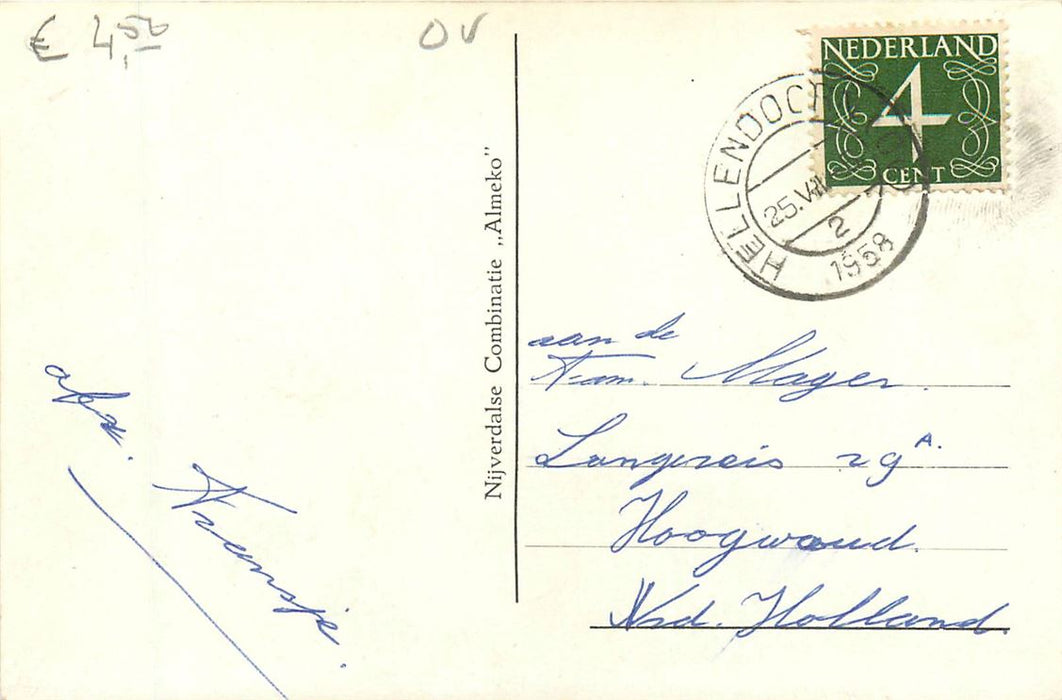 € 4,50
OV
NEDERLAND
4
CENT
HELLENDOORN
25.VIII
2
1958
Nijverdalse Combinatie „Almeko”
aan de
Fam. Mayer.
Langereis 29 A.
Hoogwoud.
Nrd. Holland.
afz.
Fransje.